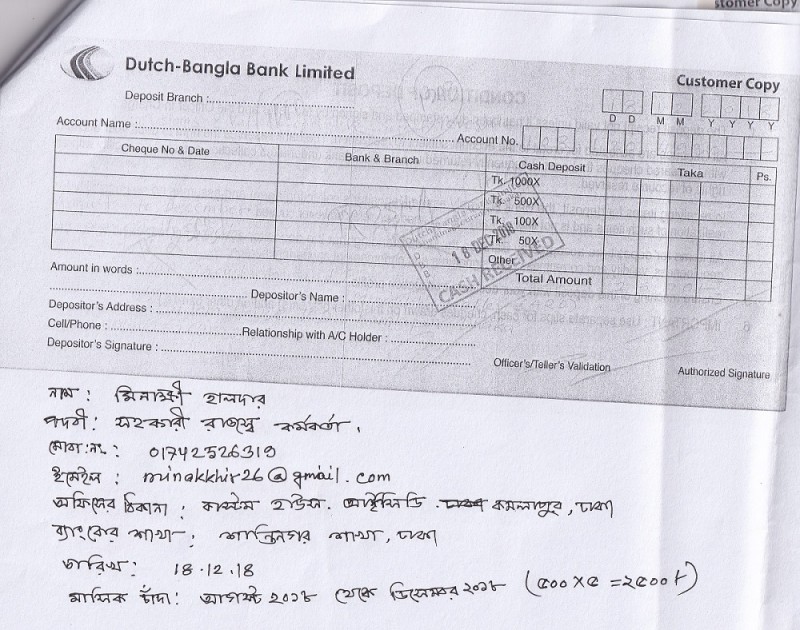 stomer Copy
Dutch-Bangla Bank Limited
Customer Copy
Deposit Branch :
D D M M Y Y Y Y
Account Name : Account No.
Cheque No & Date Bank & Branch Cash Deposit Taka Ps.
Tk. 1000X
Tk. 500X
Tk. 100X
Tk. 50X
Other
Total Amount
18 DEC 2018
CASH RECEIVED
Amount in words :
Depositor's Name :
Depositor's Address :
Cell/Phone : Relationship with A/C Holder :
Depositor's Signature :
Officer's/Teller's Validation Authorized Signature
নাম : মিনাক্ষী হালদার
পদবী : সহকারী রাজস্ব কর্মকর্তা।
মোবা: নং : 01742526319
ইমেইল : minakkhir26@gmail.com
অফিসের ঠিকানা : কাস্টম হাউস. আইসিডি. কমলাপুর, ঢাকা
ব্যাংকের শাখা : শান্তিনগর শাখা, ঢাকা
তারিখ : 18.12.18
মাসিক চাঁদা : আগস্ট ২০১৮ থেকে ডিসেম্বর ২০১৮ (৫০০X৫ =২৫০০৳)